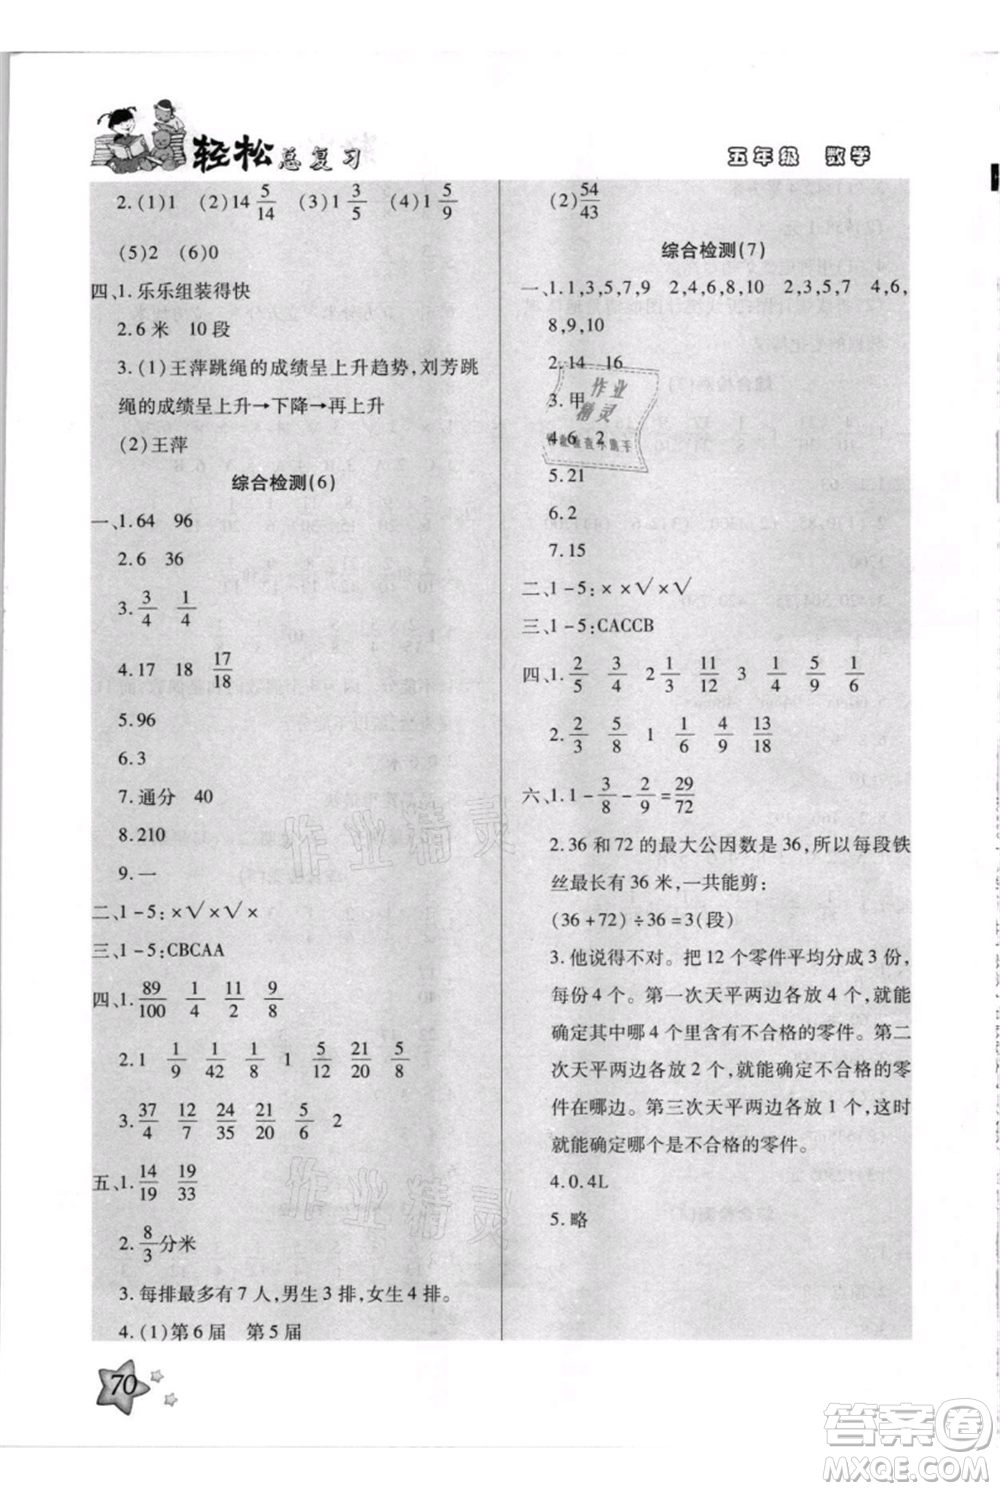 轻松总复习
五年级 数学
2.(1)1 (2)14 5/14 (3)1 3/5 (4)1 5/9
(5)2 (6)0
四、1.乐乐组装得快
2.6 米 10 段
3.(1)王萍跳绳的成绩呈上升趋势,刘芳跳
绳的成绩呈上升→下降→再上升
(2)王萍
综合检测(6)
一、1.64 96
2.6 36
3.3/4 1/4
4.17 18 17/18
5.96
6.3
7.通分 40
8.210
9.一
二、1-5:×√×√×
三、1-5:CBCAA
四、1.89/100 1/4 11/2 9/8
2.1 1/9 1/42 1/8 1 5/12 21/20 5/8
3.37/4 12/7 24/35 21/20 5/6 2
五、1.14/19 19/33
2.8/3分米
3.每排最多有 7 人,男生 3 排,女生 4 排。
4.(1)第 6 届 第 5 届
70
(2)54/43
综合检测(7)
一、1.1,3,5,7,9 2,4,6,8,10 2,3,5,7 4,6,
8,9,10
2.14 16
3.甲
4.6 2
5.21
6.2
7.15
二、1-5:××√×√
三、1-5:CACCB
四、1.2/5 3/4 2 1/6 11/12 3 1/4 5/6 1/6
2.2/3 5/8 1 1/6 4/9 13/18
六、1.1-3/8-2/9=29/72
2.36 和 72 的最大公因数是 36,所以每段铁
丝最长有 36 米,一共能剪:
(36+72)÷36=3(段)
3.他说得不对。把 12 个零件平均分成 3 份,
每份 4 个。第一次天平两边各放 4 个,就能
确定其中哪 4 个里含有不合格的零件。第二
次天平两边各放 2 个,就能确定不合格的零
件在哪边。第三次天平两边各放 1 个,这时
就能确定哪个是不合格的零件。
4.0.4L
5.略
作业
精灵
作业精灵
作业精灵
答案圈
MXQE.COM